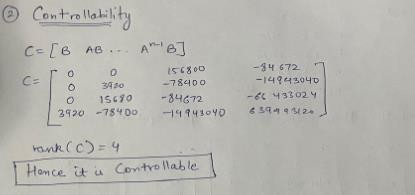 ② Controllability
C = [ B AB ... Aⁿ⁻¹ B ]
C =
0 0 156800 -84672
0 3920 -78400 -14943040
0 15680 -84672 -66 433024
3920 -78400 -14943040
rank (C) = 4
Hence it is Controllable